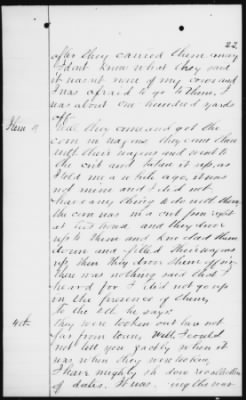 22.
after they carried them away
I dont know what they said
it wasnt none of my corn and
I was afraid to go to them, I
was about one hundred yards
off.
Item 9 Well they come and got the
corn in wagons they come then
with their wagons and went to
the crib and taken it up, as
I told you a while ago, it was
not mine and I did not
have any thing to do with them
the corn was in a crib from right
at the house and they drove
up to them and knocked them
down and filled their wagons
up then they drove them off again
There was nothing said that I
heard for I did not go up
in the presence of them,
to the 4th he says:
4th They were broken out here not
far from town, Well I could
not tell you exactly when it
was, when they was broken,
I have mighty short recollection
of dates. It was during the war